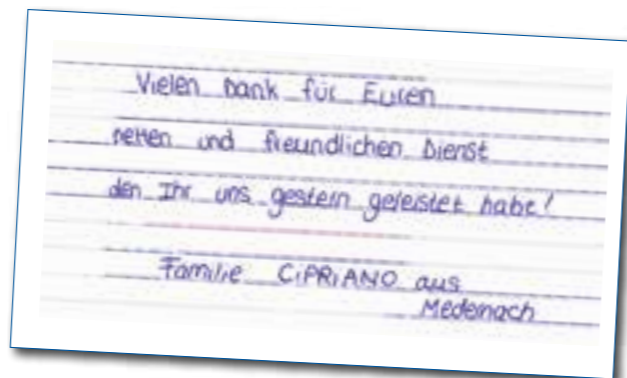 Vielen Dank für Euren
netten und freundlichen Dienst
den Ihr uns gestern geleistet habt!
Familie CiPRiANO aus
Medernach